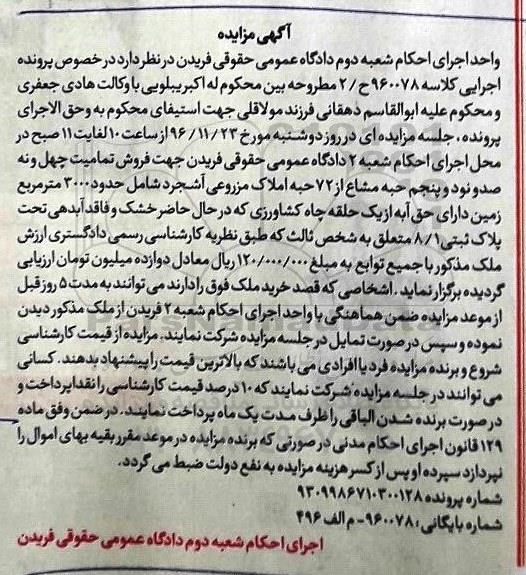 آگهی مزایده
واحد اجرای احکام شعبه دوم دادگاه عمومی حقوقی فریدن در نظر دارد در خصوص پرونده
اجرایی کلاسه ۹۶۰۰۷۸ح/۲ مطروحه بین محکوم له اکبر ییلویی با وکالت هادی جعفری
و محکوم علیه ابوالقاسم دهقانی فرزند مولاقلی جهت استیفای محکوم به وحق الاجرای
پرونده، جلسه مزایده ای در روز دوشنبه مورخ ۹۶/۱۱/۲۳ از ساعت ۱۰ لغایت ۱۱ صبح در
محل اجرای احکام شعبه ۲ دادگاه عمومی حقوقی فریدن جهت فروش تمامیت چهل و نه
صدو نود و پنجم حبه مشاع از ۷۲ حبه املاک مزروعی آشجرد شامل حدود ۳۰۰۰ مترمربع
زمین دارای حق آبه از یک حلقه چاه کشاورزی که در حال حاضر خشک و فاقد آبدهی تحت
پلاک ثبتی ۸/۱ متعلق به شخص ثالث که طبق نظریه کارشناسی رسمی دادگستری ارزش
ملک مذکور با جمیع توابع به مبلغ ۱۲۰/۰۰۰/۰۰۰ ریال معادل دوازده میلیون تومان ارزیابی
گردیده برگزار نماید. اشخاصی که قصد خرید ملک فوق را دارند می توانند به مدت ۵ روز قبل
از موعد مزایده ضمن هماهنگی با واحد اجرای احکام شعبه ۲ فریدن از ملک مذکور دیدن
نموده و سپس در صورت تمایل در جلسه مزایده شرکت نمایند. مزایده از قیمت کارشناسی
شروع و برنده مزایده فرد یا افرادی می باشند که بالاترین قیمت را پیشنهاد بدهند. کسانی
می توانند در جلسه مزایده شرکت نمایند که ۱۰ درصد قیمت کارشناسی را نقدا پرداخت و
در صورت برنده شدن الباقی را ظرف مدت یک ماه پرداخت نمایند. در ضمن وفق ماده
۱۲۹ قانون اجرای احکام مدنی در صورتی که برنده مزایده در موعد مقرر بقیه بهای اموال را
نپردازد سپرده او پس از کسر هزینه مزایده به نفع دولت ضبط می گردد.
شماره پرونده ۹۳۰۹۹۸۶۷۱۰۳۰۰۱۲۸
شماره بایگانی: ۹۶۰۰۷۸- م الف ۴۹۶
اجرای احکام شعبه دوم دادگاه عمومی حقوقی فریدن